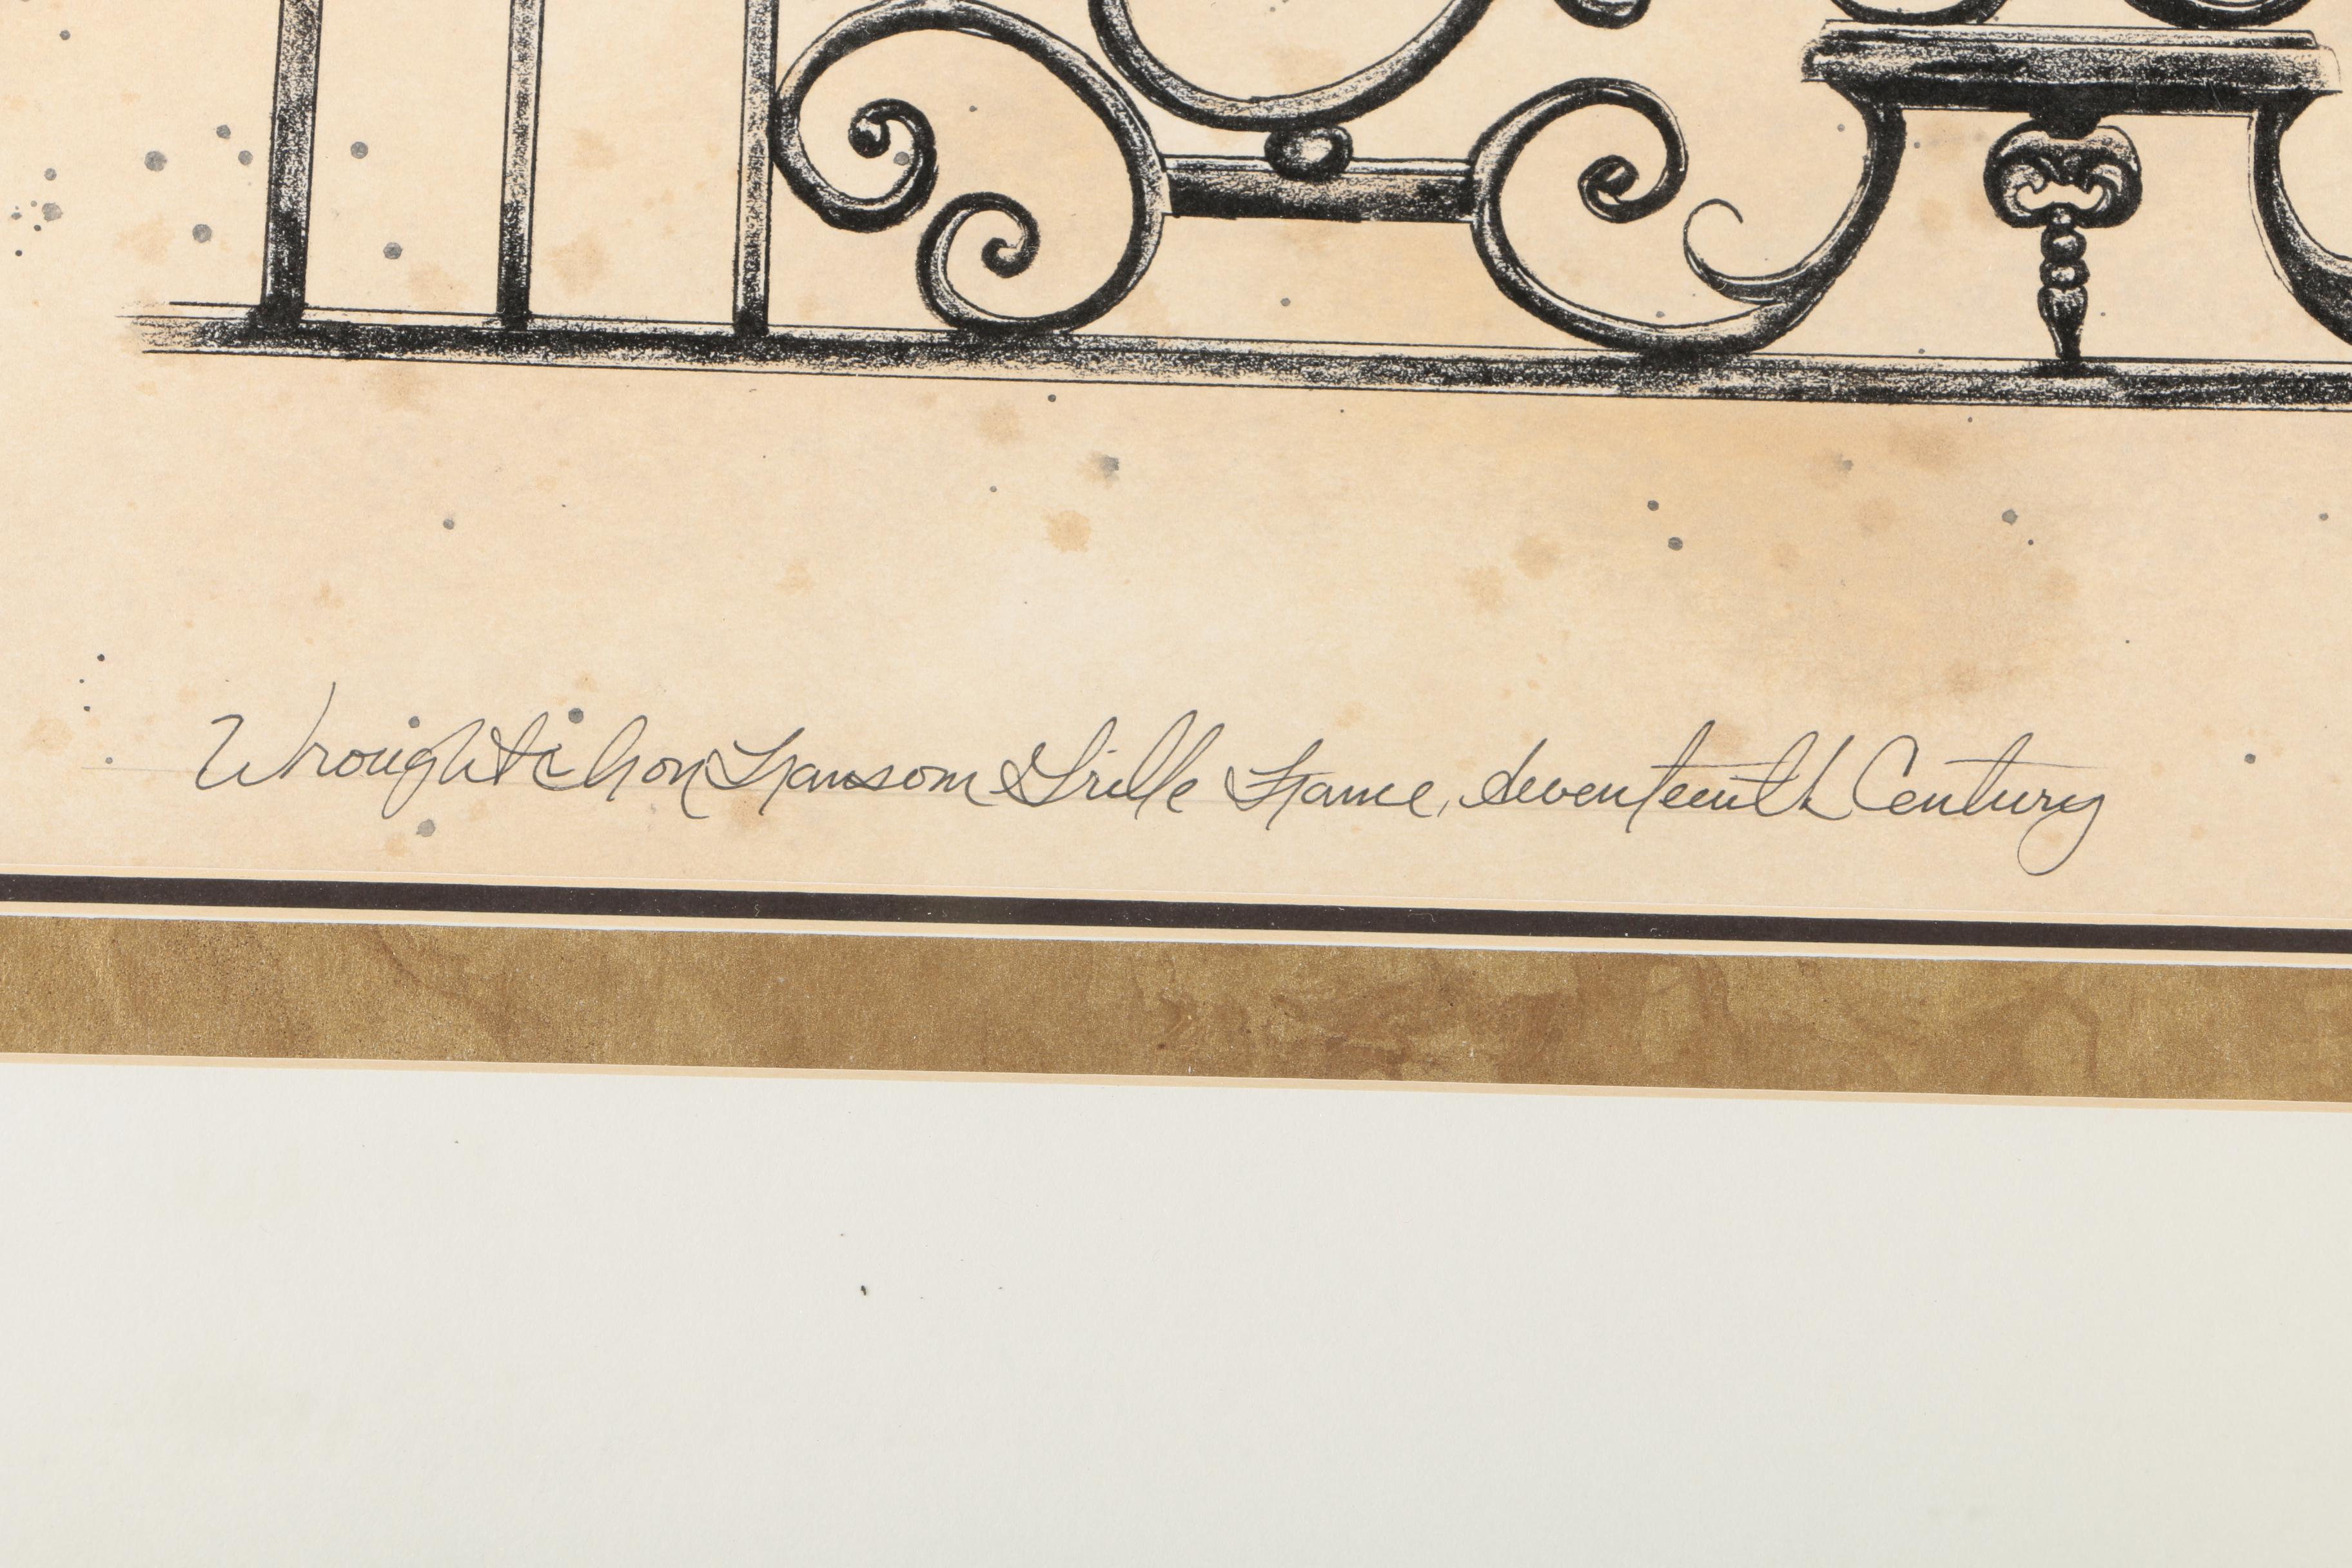 Wrought Iron Transom Grille France, Seventeenth Century